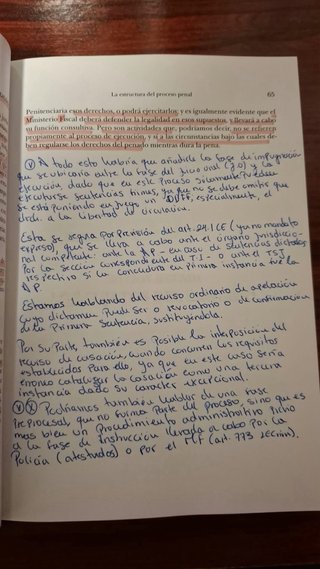 La estructura del proceso penal 65
Penitenciaria esos derechos, o podrá ejercitarlos; y es igualmente evidente que el
Ministerio Fiscal deberá defender la legalidad en esos supuestos, y llevará a cabo
su función consultiva. Pero son actividades que, podríamos decir, no se refieren
propiamente al proceso de ejecución, y sí a las circunstancias bajo las cuales de-
ben regularse los derechos del penado mientras dura la pena.
A todo esto habría que añadirle la fase de impugnación
que se ubicaría entre la fase del juicio oral (3.0) y la
ejecución, dado que en este proceso sólamente pueden
ejecutarse sentencias firmes, ya que no se debe omitir que
se está poniendo en juego un DDFF, especialmente, el
dcho. a la libertad de circulación.
Esta se segrega por previsión del art. 24.1 CE (ya no mandato
expreso), que se lleva a cabo ante el órgano jurisdiccio-
nal competente: ante la AP – en caso de sentencias dictadas
por la sección correspondiente del T.I – o ante el TSJ
respectivo si la conocedora en primera instancia fue la
AP.
Estamos hablando del recurso ordinario de apelación
cuyo dictamen puede ser o revocatorio o de confirmación
de la primera sentencia, sustituyéndola.
Por su parte, también es posible la interposición del
recurso de casación, cuando concurran los requisitos
establecidos para ello, ya que en este caso sería
erróneo catalogar la casación como una tercera
instancia dado su carácter excepcional.
Podríamos también hablar de una fase
preprocesal, que no forma parte del proceso, sino que es
mas bien un procedimiento administrativo previo
a la fase de instrucción llevada a cabo por la
Policía (atestados) o por el MF (art. 773 LECrim).